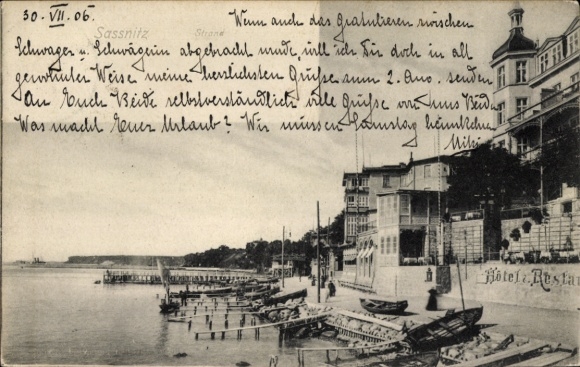 30. VII. 06.
Sassnitz Strand
Wenn auch das Gratulieren zwischen
Schwager u. Schwägerin abgebracht wurde, will ich Dir doch in alt
gewohnter Weise meine herzlichsten Grüße zum 2. Aug. senden
An Euch Beide selbstverständlich viele Grüße von uns Beid
Was macht Euer Urlaub? Wir müssen Samstag heim
Hôtel & Resta